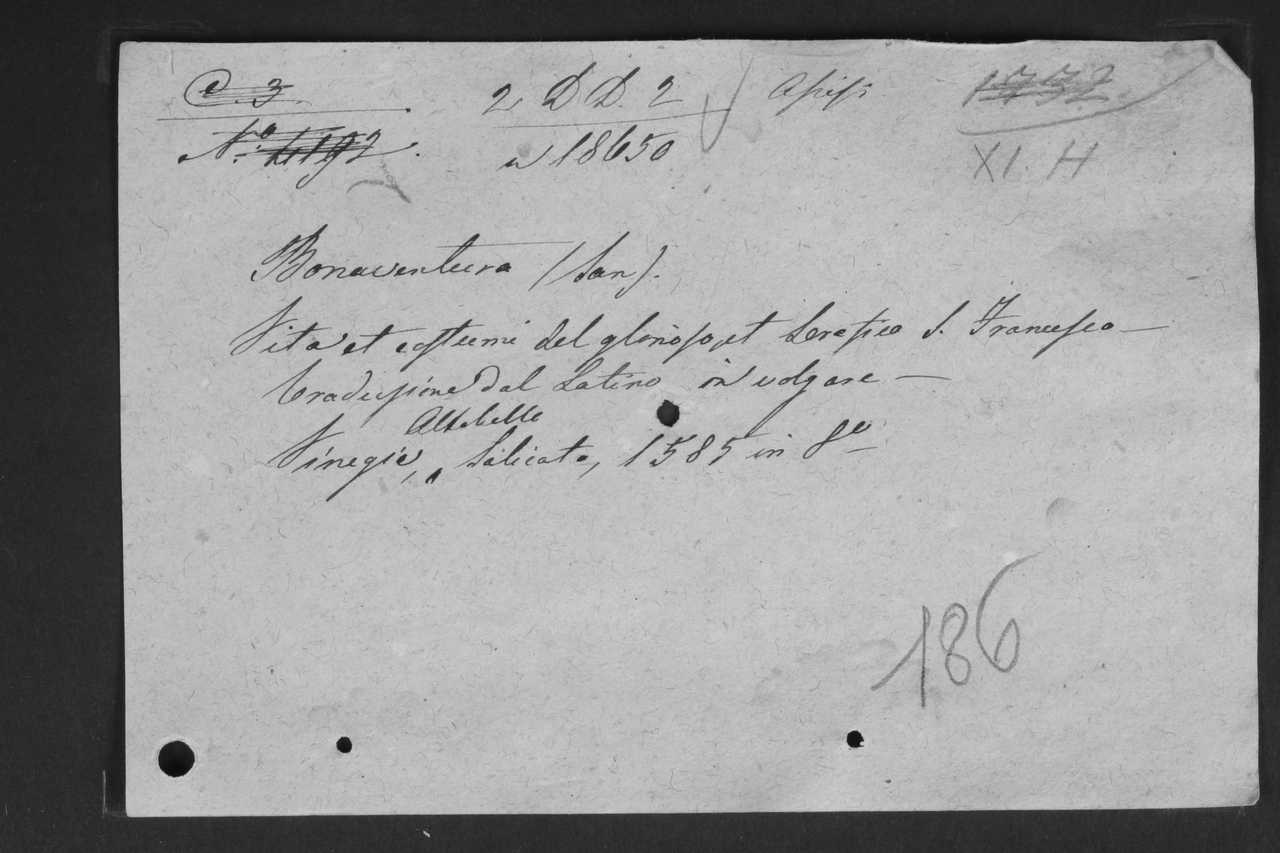 C. 3. 2 D D. 2 Assisi
N.º 4192. n 18650 XI. H
Bonaventura (San).
Vita et costumi del glorioso, et Serafico S. Francesco —
traduzione dal Latino in volgare —
Altobello
Vinegia, Salicato, 1585 in 8º
186